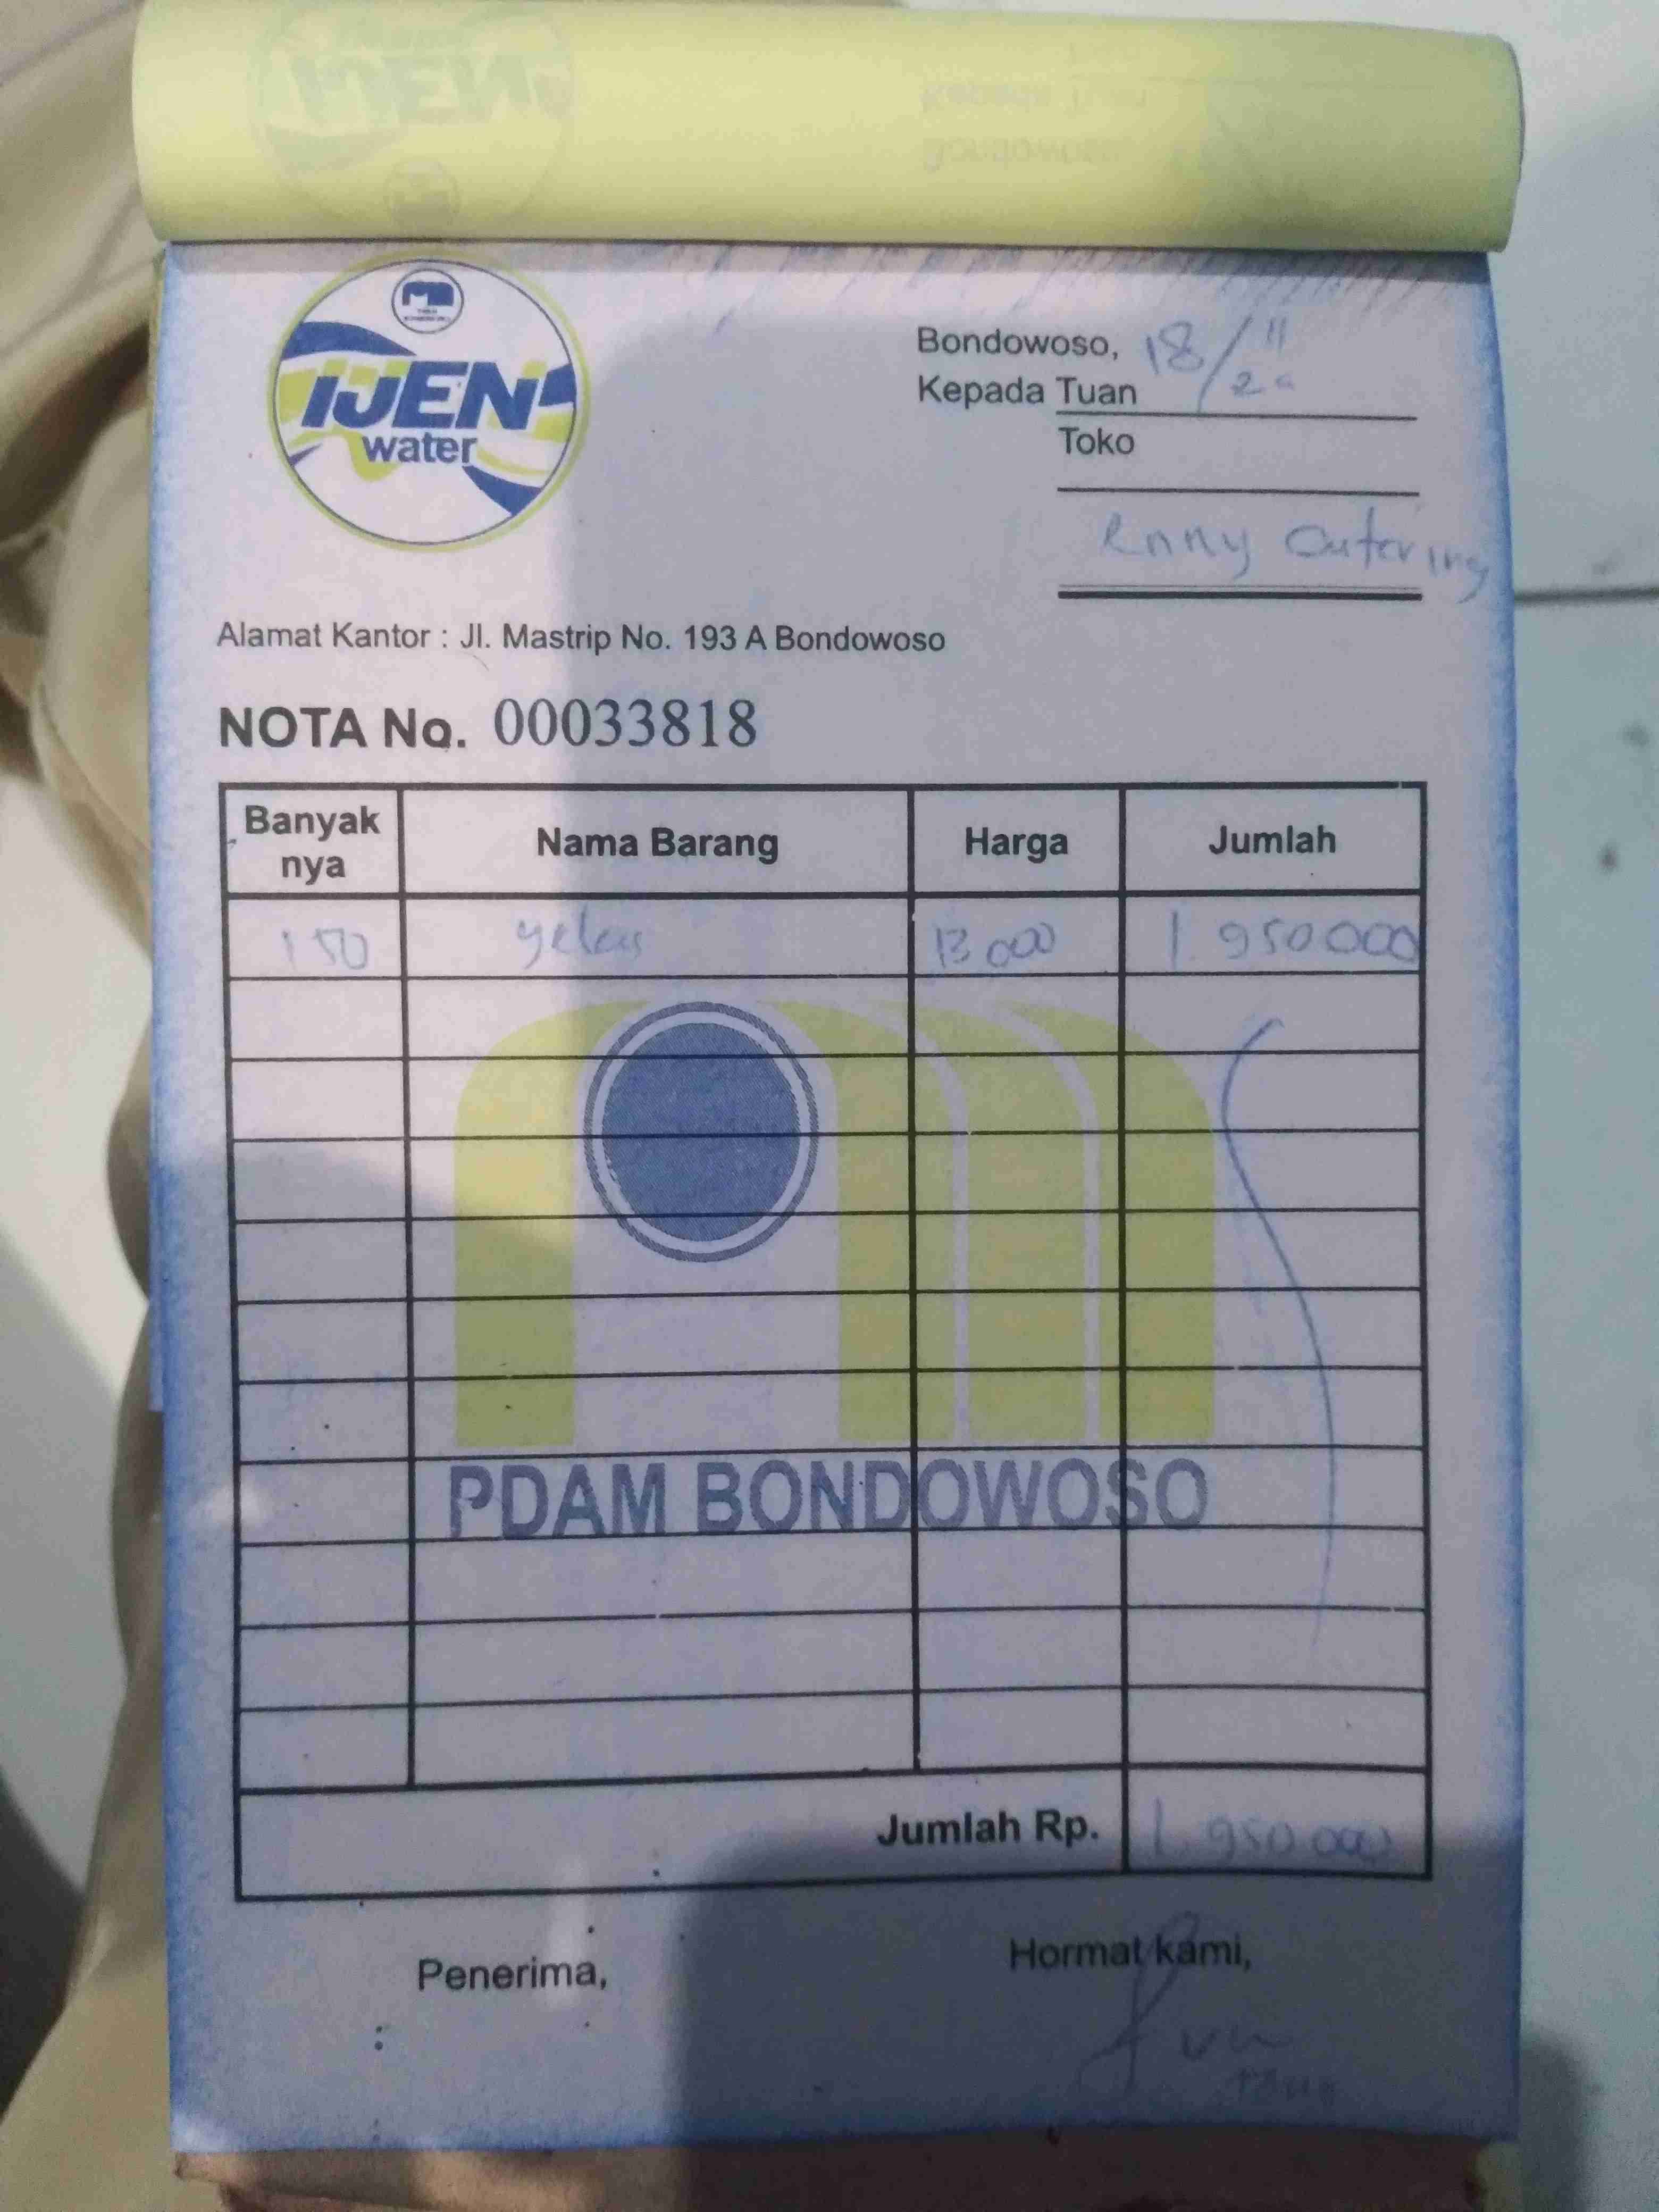 IJEN
water
Bondowoso, 18/11
Kepada Tuan
Toko
Enny Catering
Alamat Kantor : Jl. Mastrip No. 193 A Bondowoso
NOTA No. 00033818
Banyak nya Nama Barang Harga Jumlah
150 gelas 13 000 1.950 000
PDAM BONDOWOSO
Jumlah Rp. 1.950 000
Penerima, Hormat kami,